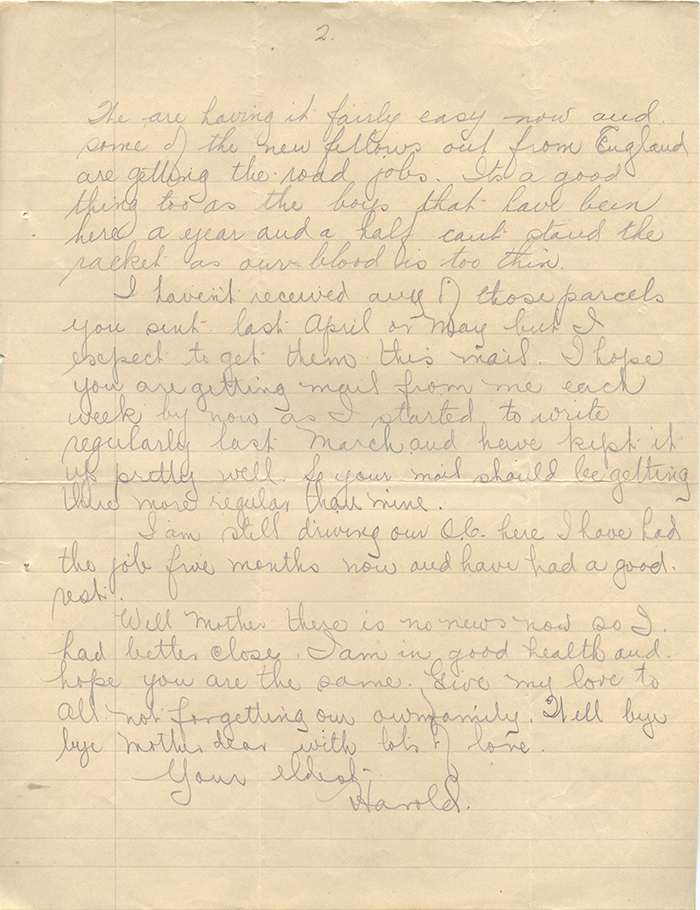 2.
We are having it fairly easy now and
some of the new fellows out from England
are getting the road jobs. Its a good
thing too as the boys that have been
here a year and a half cant stand the
racket as our blood is too thin.
I haven't received any of those parcels
you sent last April or May but I
expect to get them this mail. I hope
you are getting mail from me each
week by now as I started to write
regularly last March and have kept it
up pretty well. So your mail should be getting
there more regular than mine.
I am still driving our O.C. here I have had
the job five months now and have had a good
rest.
Well Mother there is no news now so I
had better close. I am in good health and
hope you are the same. Give my love to
all not forgetting our own family. Well bye
bye Mother dear with lots of love.
Your eldest
Harold.